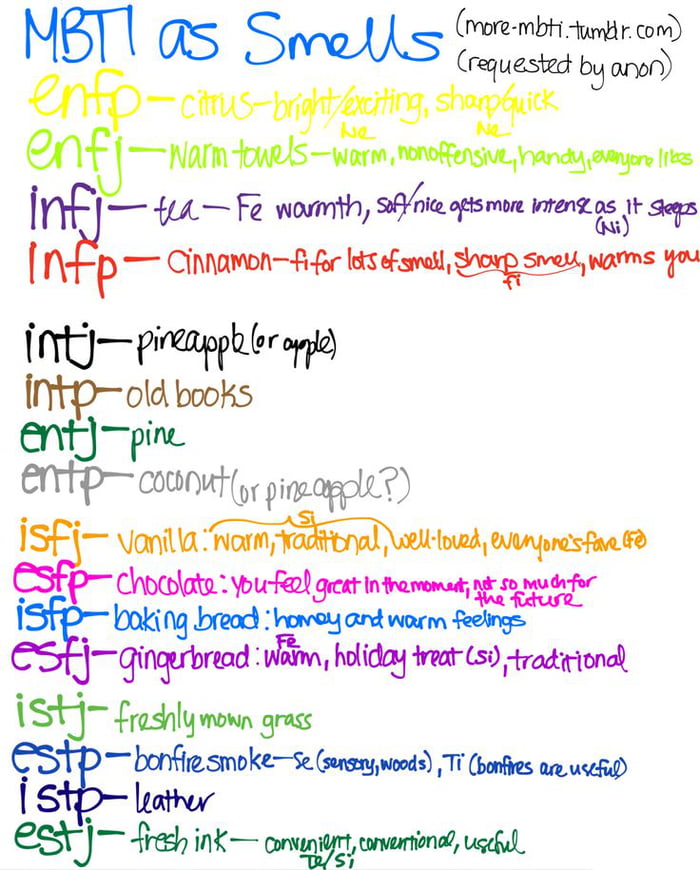 MBTI as Smells (more-mbti.tumblr.com)
(requested by anon)
enfp — citrus — bright/exciting, sharp/quick
Ne Ne
enfj — warm towels — warm, nonoffensive, handy, everyone likes
infj — tea — Fe warmth, soft/nice gets more intense as it steeps
(Ni)
infp — cinnamon — fi for lots of smell, sharp smell, warms you
fi
intj — pineapple (or apple)
intp — old books
entj — pine
entp — coconut (or pineapple?)
Si
isfj — vanilla: warm, traditional, well-loved, everyone's fave (Fe)
esfp — chocolate: you feel great in the moment, not so much for
the future
isfp — baking bread: homey and warm feelings
Fe
esfj — gingerbread: warm, holiday treat (Si), traditional
istj — freshly mown grass
estp — bonfire smoke — Se (sensory, woods), Ti (bonfires are useful)
istp — leather
estj — fresh ink — convenient, conventional, useful
Te/Si